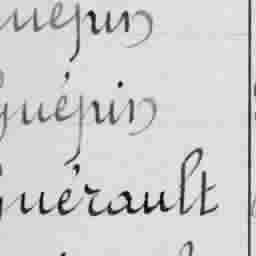 Guépin
Guépin
Guérault